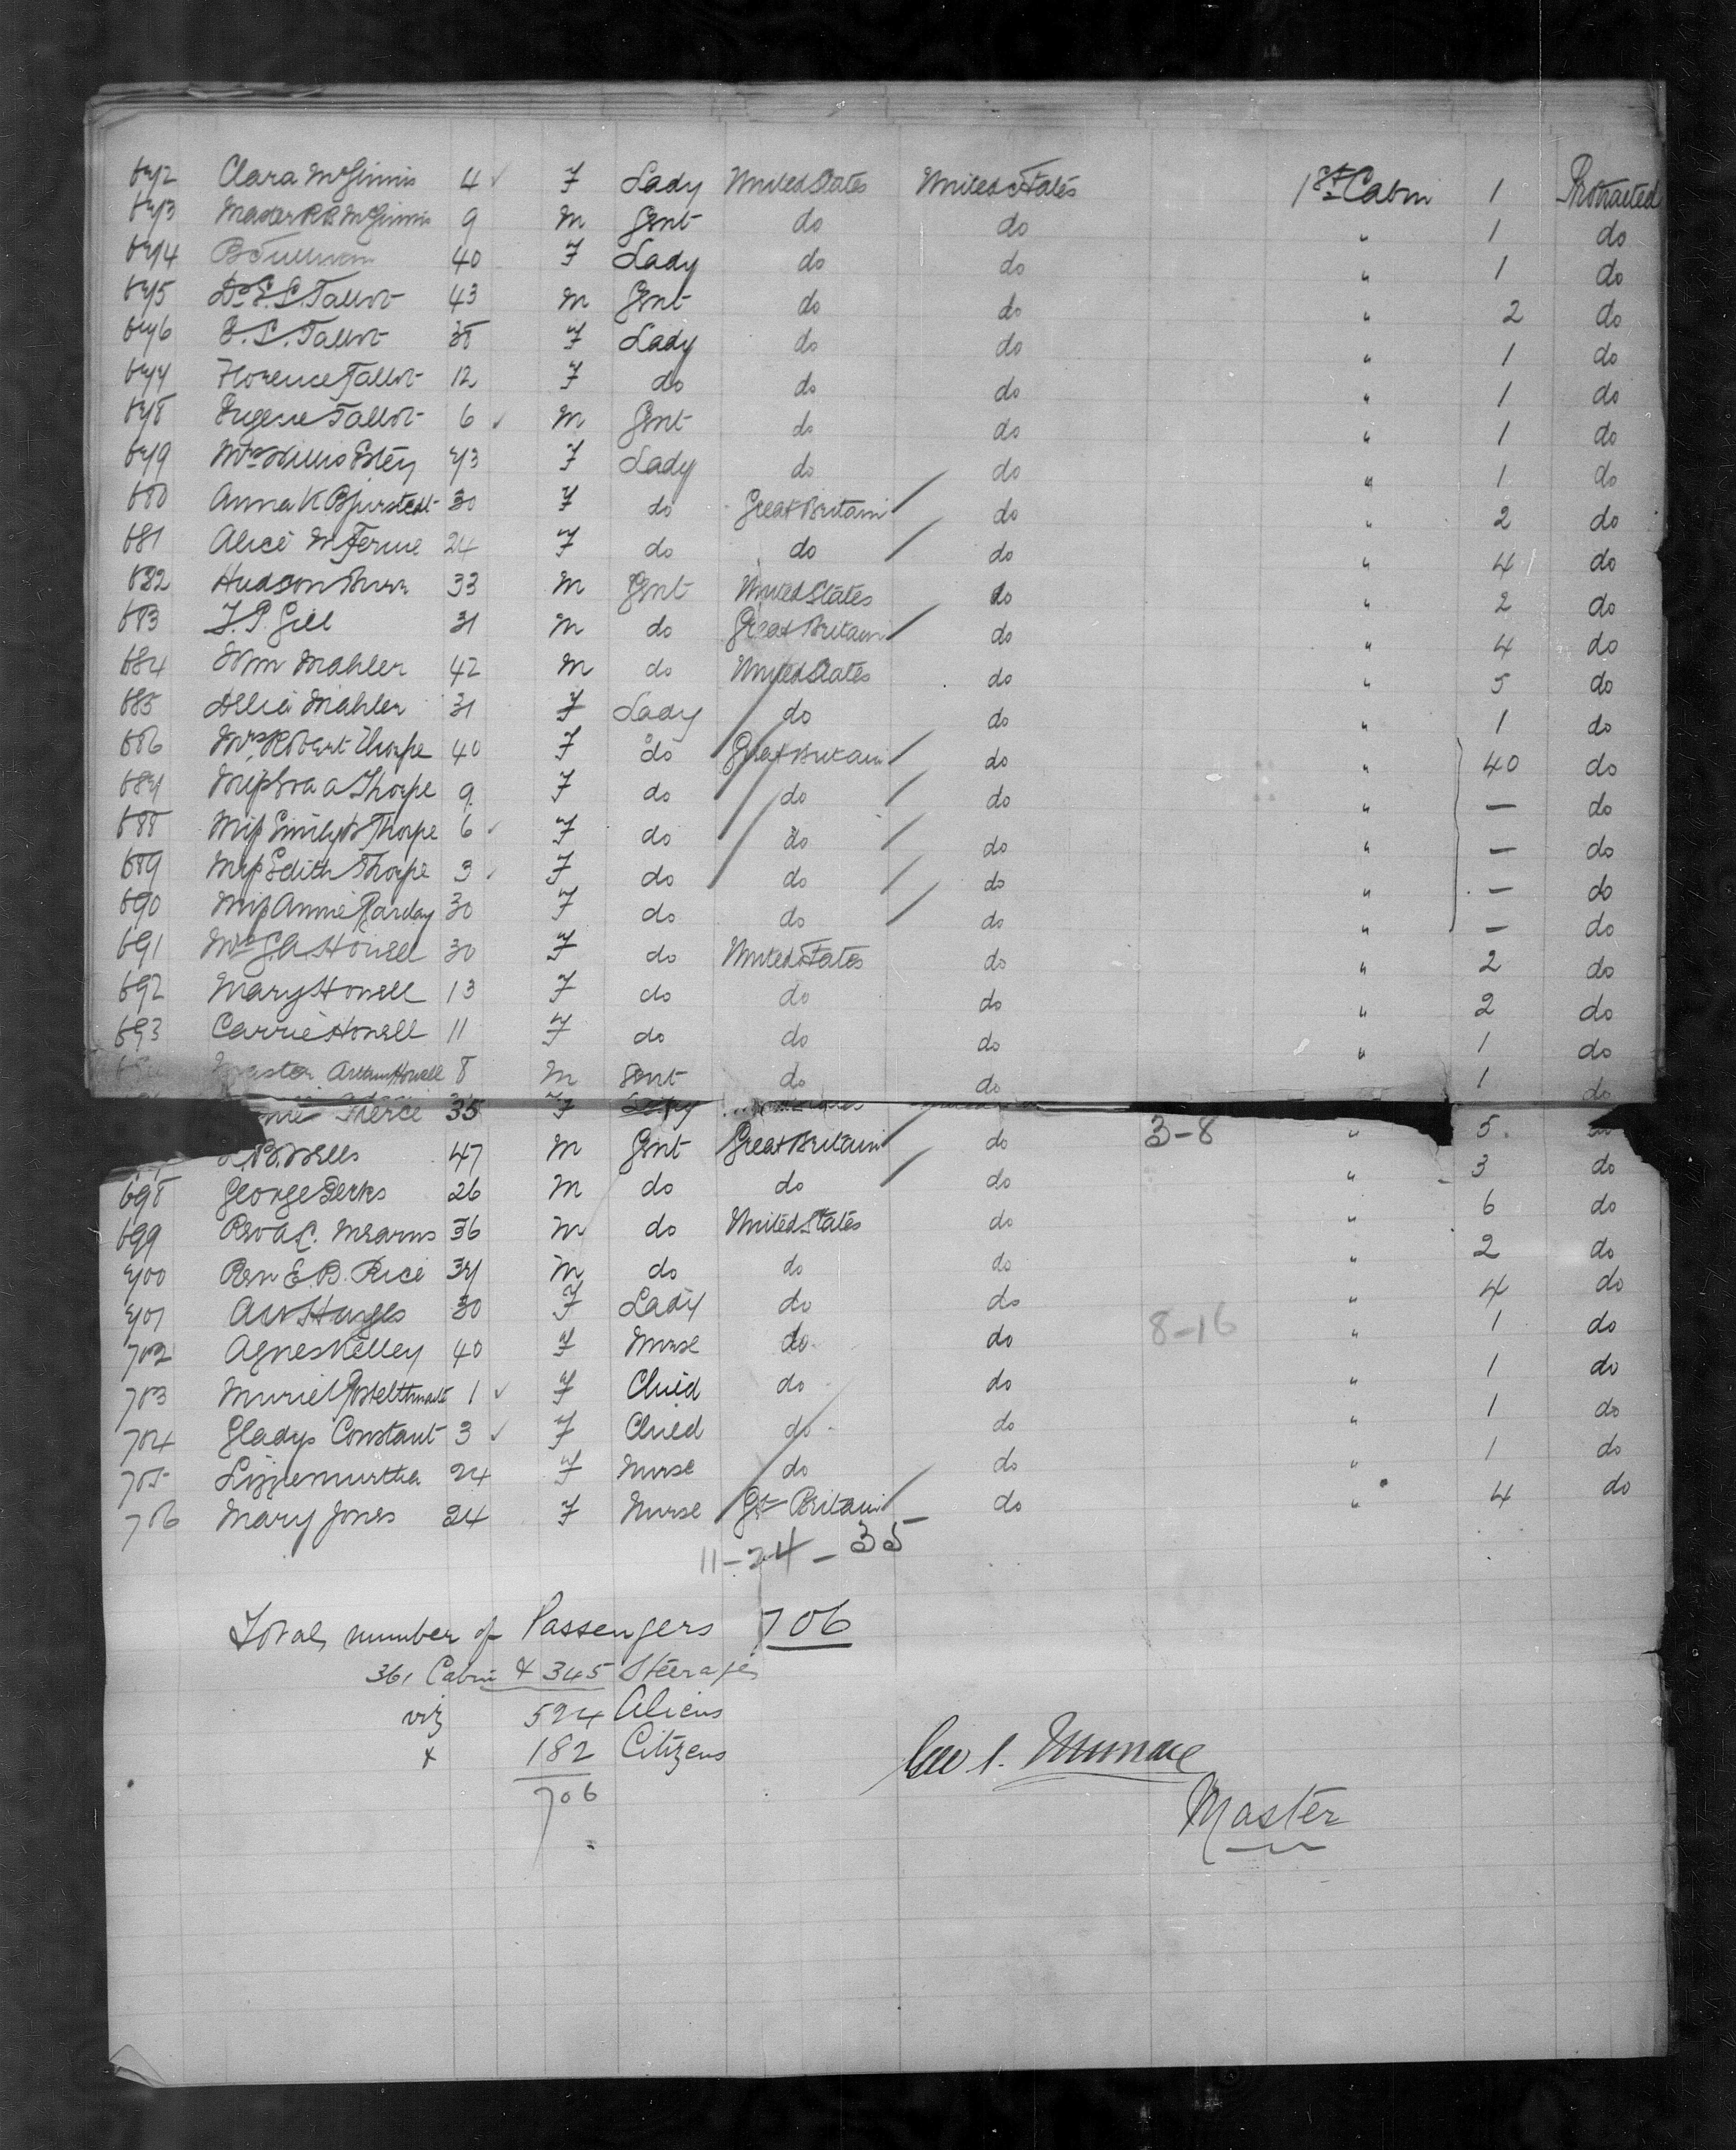 672 Clara McGinnis 4 ✓ F Lady United States United States 1st Cabin 1 Protracted
673 Master R B McGinnis 9 M Gent do do " 1 do
674 40 F Lady do do " 1 do
675 Dr E. S. Talbot 43 M Gent do do " 2 do
676 E. S. Talbot 38 F Lady do do " 1 do
677 Florence Talbot 12 F do do do " 1 do
678 Eugene Talbot 6 ✓ M Gent do do " 1 do
679 Mrs Willis Estey 73 F Lady do do " 1 do
680 Anna K 30 F do Great Britain do " 2 do
681 Alice M Ferme 24 F do do do " 4 do
682 Hudson 33 M Gent United States do " 2 do
683 J. P. Gill 31 M do Great Britain do " 4 do
684 Wm Mahler 42 M do United States do " 5 do
685 Delia Mahler 31 F Lady do do " 1 do
686 Mrs Robert Thorpe 40 F do Great Britain do " 40 do
687 Miss Eva A Thorpe 9 F do do do " — do
688 Miss Emily Thorpe 6 ✓ F do do do " — do
689 Miss Edith Thorpe 3 ✓ F do do do " — do
690 Miss Annie 30 F do do do " — do
691 Mrs G A Howell 30 F do United States do " 2 do
692 Mary Howell 13 F do do do " 2 do
693 Carrie Howell 11 F do do do " 1 do
Master Arthur Howell 8 M Gent do do 1 do
Pierce 35 F Lady
B. Wells 47 M Gent Great Britain do 3-8 " 5
698 George Perks 26 M do do do " 3 do
699 Rev A C. Mearns 36 M do United States do " 6 do
700 Rev E. B. Rice 37 M do do do " 2 do
701 A W Huggs 30 F Lady do do " 4 do
702 Agnes Kelley 40 F Nurse do do 8-16 " 1 do
703 Muriel Postelthwaite 1 ✓ F Child do do " 1 do
704 Gladys Constant 3 ✓ F Child do do " 1 do
705 Lizzie Murtha 24 F Nurse do do " 1 do
706 Mary Jones 24 F Nurse Gt Britain do " 4 do
11-24-35
Total number of Passengers 706
361 Cabin & 345 Steerage
viz 524 Aliens
& 182 Citizens
706
Geo S. Munroe
Master